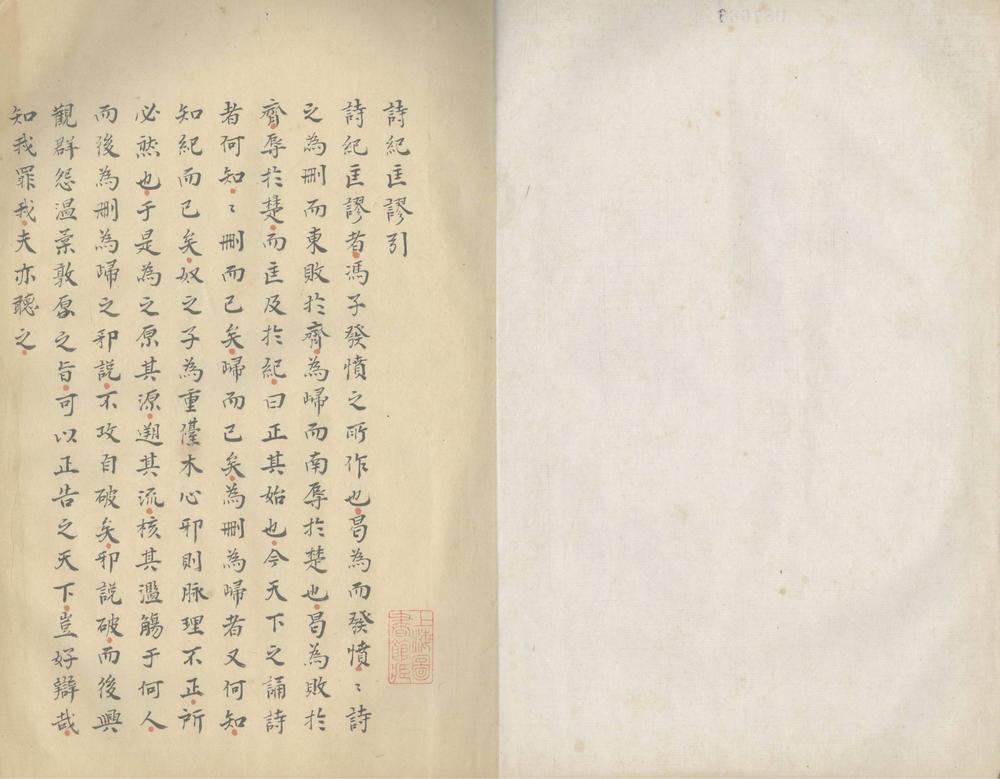 詩紀匡謬引
詩紀匡謬者馮子發憤之所作也曷為而發憤〻詩
之為刪而東敗於齊為歸而南辱於楚也曷為敗於
齊辱於楚而匡及於紀曰正其始也今天下之誦詩
者何知〻刪而已矣歸而已矣為刪為歸者又何知
知紀而已矣奴之子為重儓木心邪則脉理不正所
必然也于是為之原其源遡其流核其濫觴于何人
而後為刪為歸之邪說不攻自破矣邪說破而後興
觀群怨温柔敦厚之旨可以正告之天下豈好辯哉
知我罪我夫亦聽之
上海圖書館所